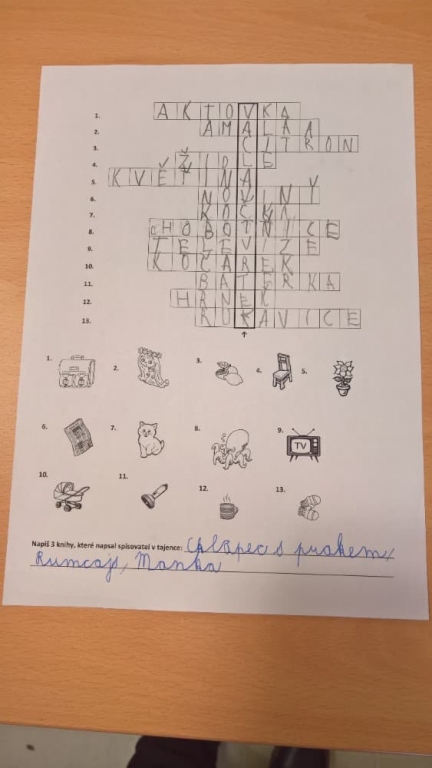 1. AKTOVKA
2. AMALKA
3. CITRON
4. ŽIDLE
5. KVĚTINA
6. NOVINY
7. KOČKA
8. CHOBOTNICE
9. TELEVIZE
10. KOČAREK
11. BATERKA
12. HRNEK
13. RUKAVICE
1. 2. 3. 4. 5.
6. 7. 8. 9. TV
10. 11. 12. 13.
Napiš 3 knihy, které napsal spisovatel v tajence: Chlapec s prakem,
Rumcajs, Manka